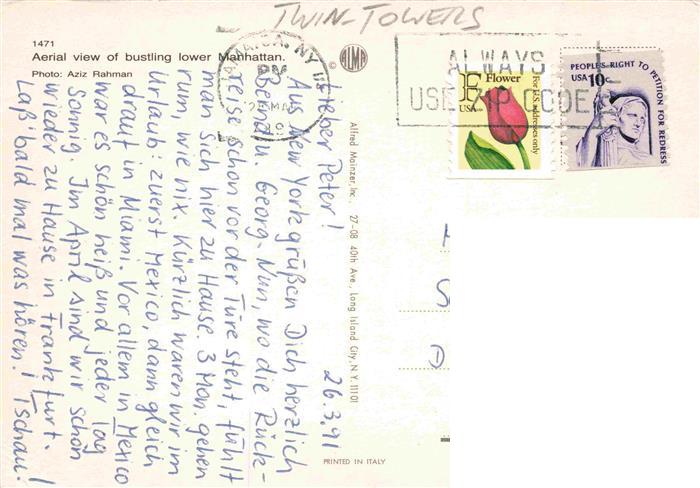 TWIN-TOWERS
1471
Aerial view of bustling lower Manhattan.
Photo: Aziz Rahman
© ALMA
JAMAICA, NY
PM
ALWAYS
USE ZIP CODE
F Flower
USA
For U.S. addresses only
PEOPLE'S RIGHT TO PETITION FOR REDRESS
USA 10c
26.3.91
Lieber Peter!
Aus New York grüßen Dich herzlich
Georg. Nun, wo die Rück-
reise schon vor der Türe steht, fühlt
man sich hier zu Hause. 3 Mon. gehen
rum wie nix. Kürzlich waren wir im
Urlaub: zuerst Mexico, dann gleich
drauf in Miami. Vor allem in Mexico
war es schön heiß und jeder Tag
sonnig. Im April sind wir schon
wieder zu Hause in Frankfurt.
Laß' bald mal was hören! Tschau!
Alfred Mainzer, Inc. 27-08 40th Ave., Long Island City, N.Y. 11101
PRINTED IN ITALY